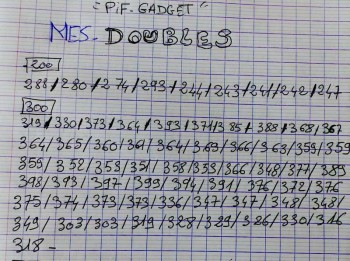 "PIF. GADGET"
MES. DOUBLES
200
288/280/274/293/244/243/241/242/247
300
319/380/373/364/393/371/385/388/368/367
364/365/360/361/364/363/366/363/359/359
359/352/353/351/358/353/366/348/377/389
398/393/397/399/394/391/376/372/376
375/374/373/373/336/347/347/348/348/
349/303/303/319/328/329/326/330/316
318-